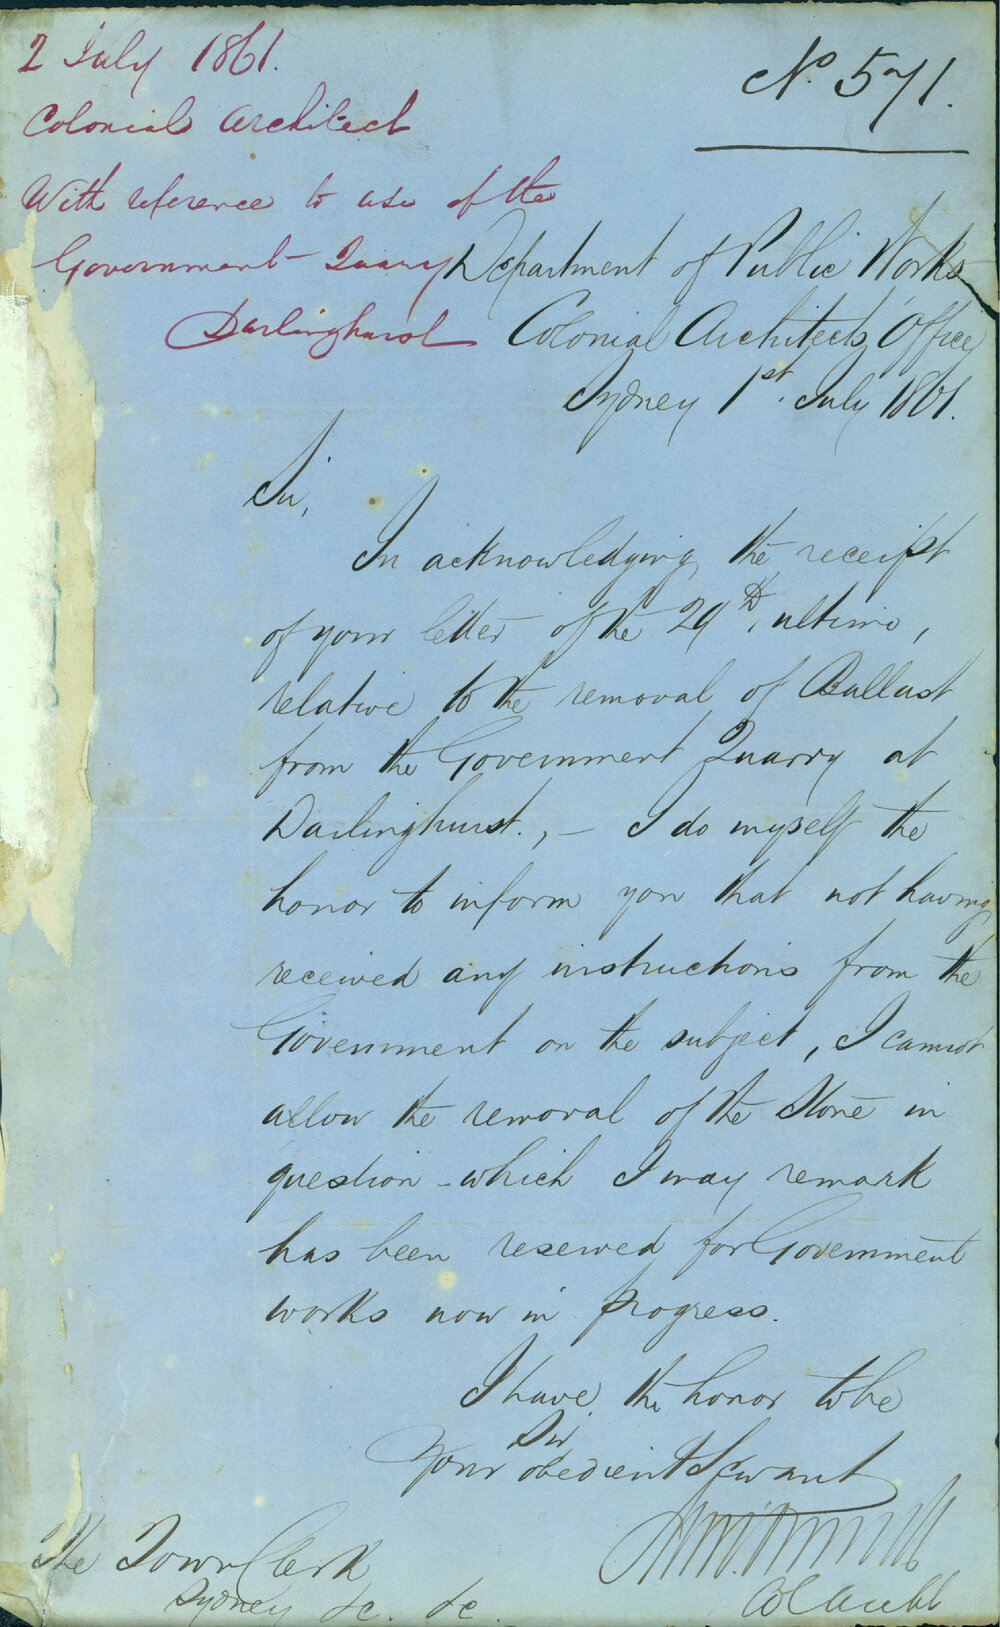 2 July 1861.
Colonial Architect
With reference to use of the
Government Quarry
Darlinghurst
No. 571.
Department of Public Works
Colonial Architects Office
Sydney 1st. July 1861.
Sir,
In acknowledging the receipt
of your letter of the 29th, ultimo,
relative to the removal of Ballast
from the Government Quarry at
Darlinghurst., – I do myself the
honor to inform you that not having
received any instructions from the
Government on the subject, I cannot
allow the removal of the Stone in
question – which I may remark
has been reserved for Government
works now in progress.
I have the honor to be
Sir
Your obedient Servant
Col Archt
The Town Clerk
Sydney &c. &c.